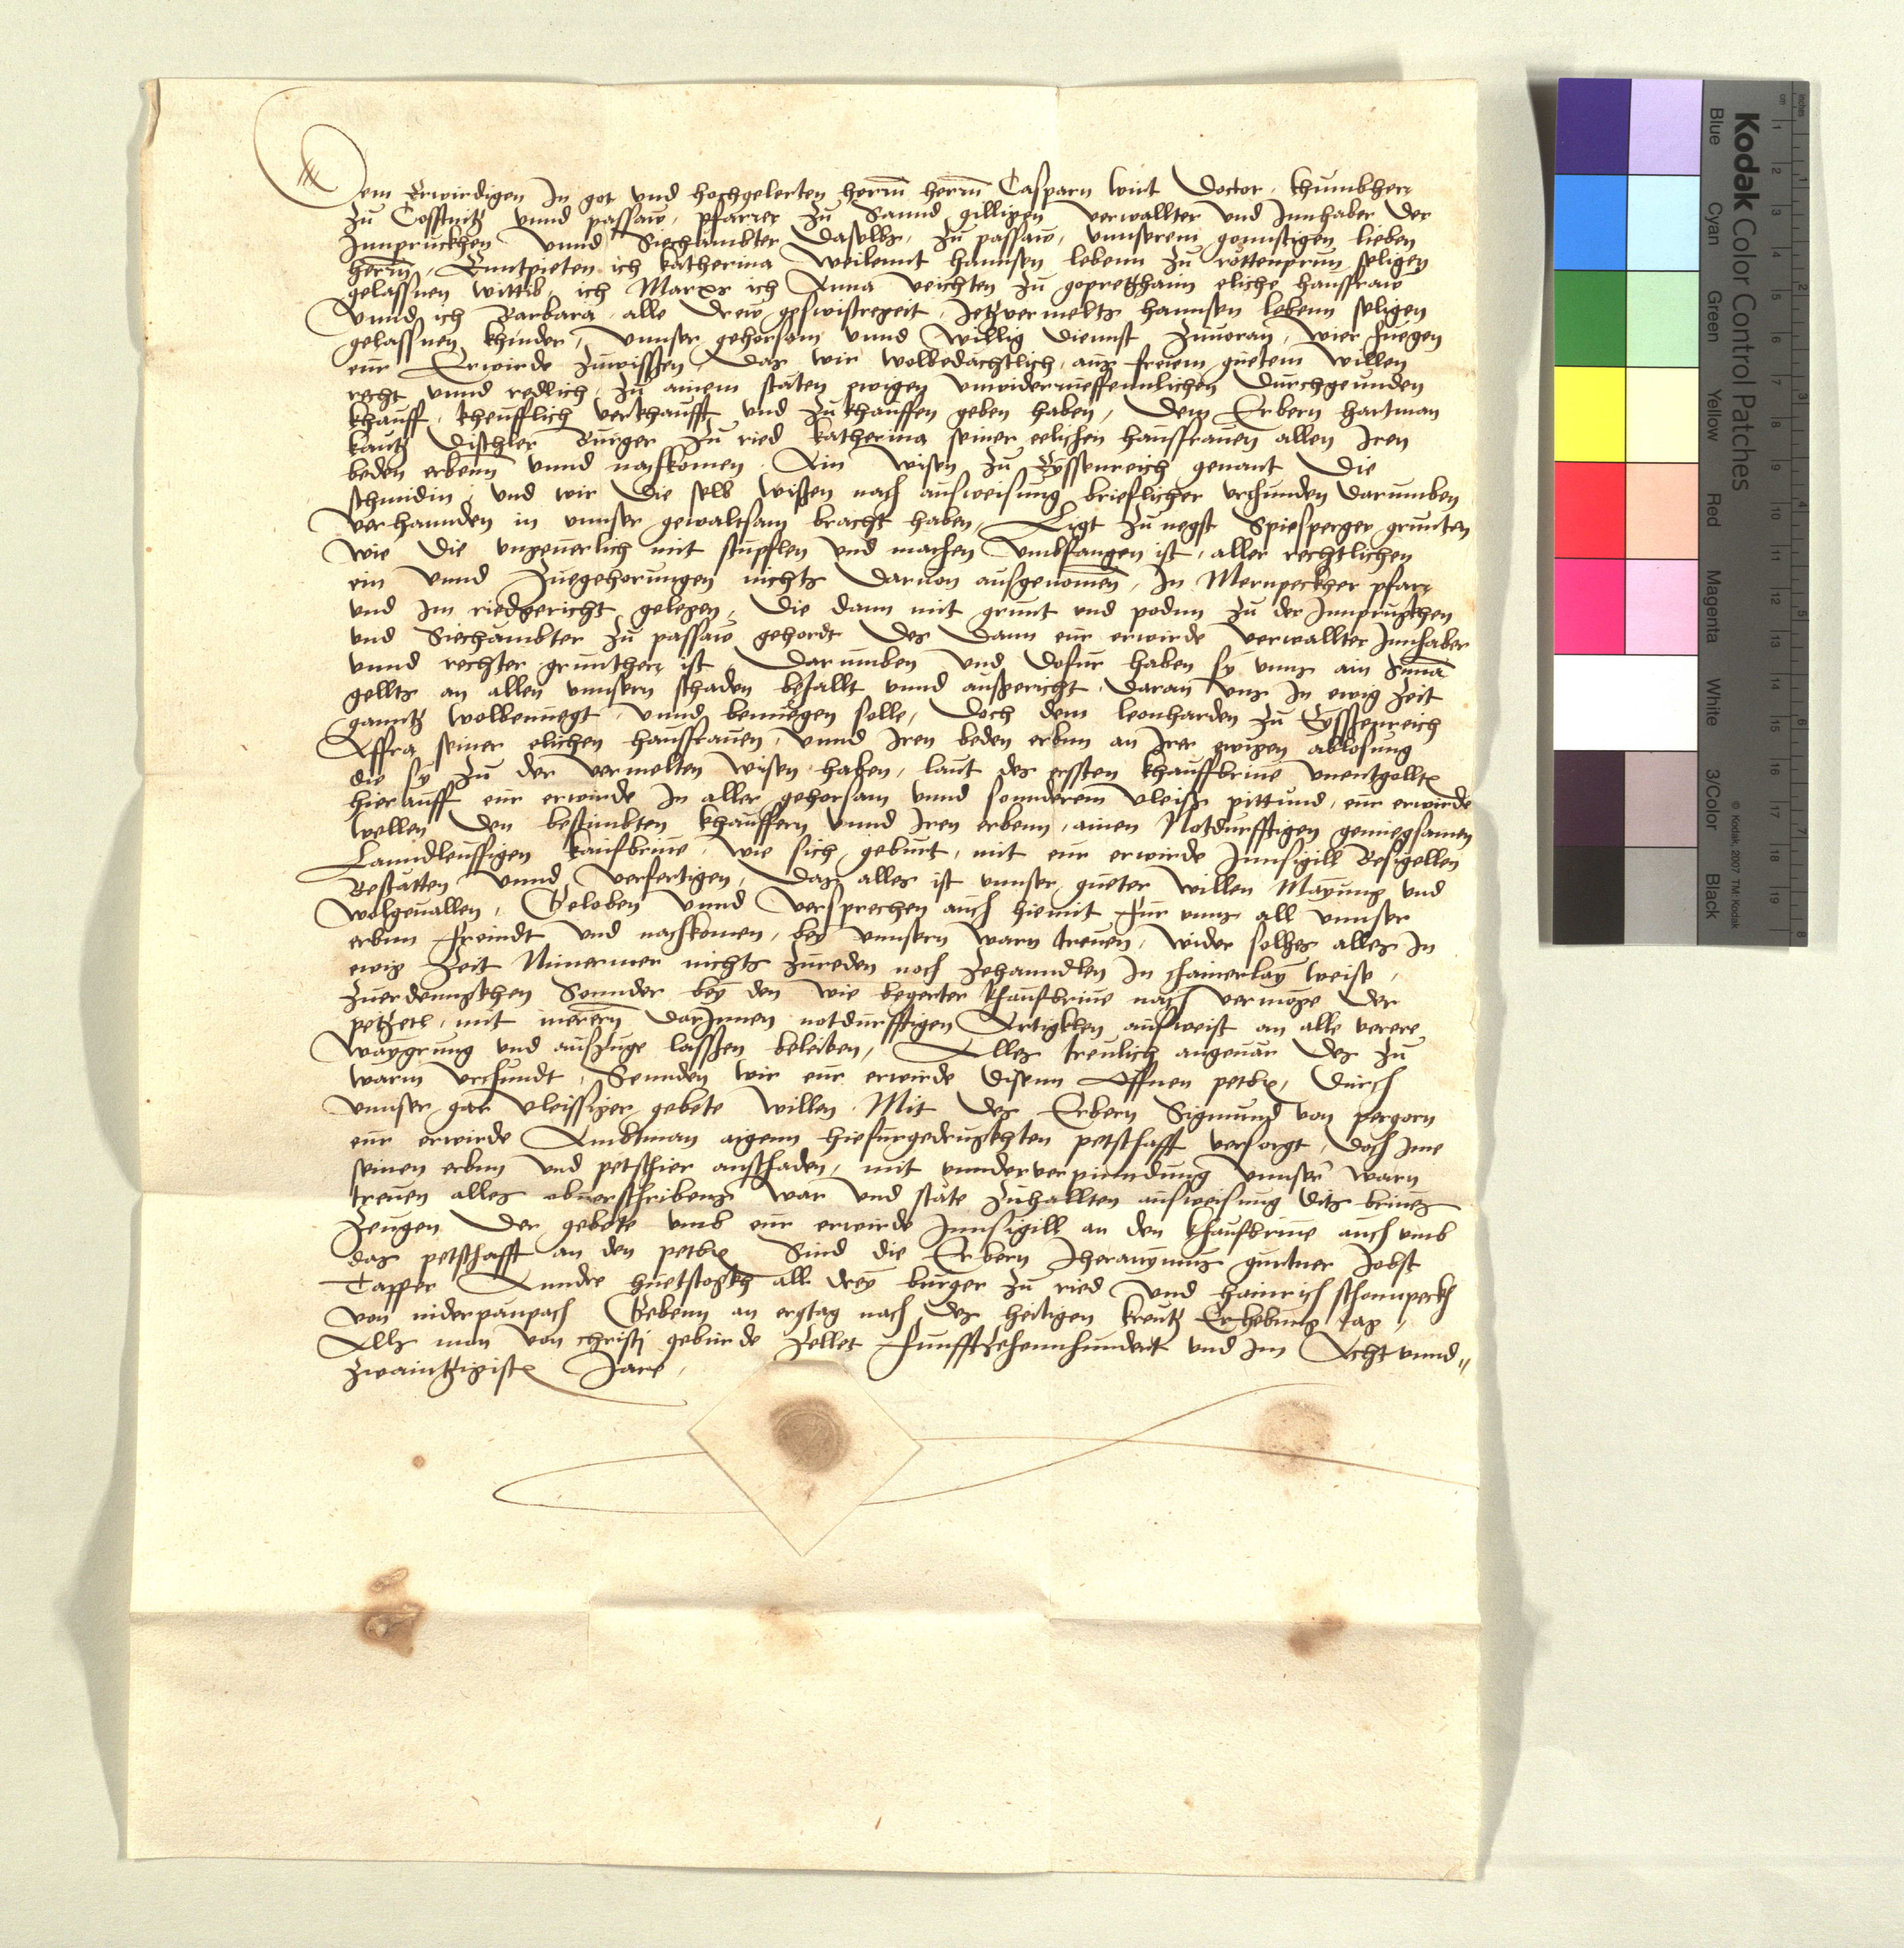 Dem Erwirdigen In got vnd hochgelerten herrn̄ herrn̄ Casparn wirt Doctor, khumbherr
zu Cosstnitz vnnd passaw, pfarrer zu Sannd gilligen verwallter vnd Innhaber der
Innpruckhen vnnd Siechambter daselbs, zu passaw, vnnserem gonnstigen lieben
herrn̄, Enntpieten ich katherina weilennt hannsen lebenn zu rottenprun seligen
gelassnen wittib, ich Marxs ich Anna veichten zu gopretzhaim eliche hausfraw
vnnd ich Barbara alle drew geswistrezeit, Jetzvermelts hannsen lebenn seligen
gelassnen khinder, vnnser gehorsam vnnd willig diennst zuuoran, wier fuegen
eur Erwirde zuwissen, das wir wolbedachtlich, aus freiem guetem willen
recht vnnd redlich zu ainem stäten ewigen vnwiderrueffennlichen durchgeunden
khauff, kheufflich verkhaufft vnd zukhauffen geben haben, dem Erbern hartman
kautz dischler Burger zu ried katherina seiner eelichen hausfrauen allen Iren
beden erbenn̄ vnnd nachkomen Ain wisen zu Eyssenreich genant die
schmidin, vnd wir die selb wissen nach ausweisung brieflicher vrchunden darumben
verhannden in vnnser gewaltsam bracht haben, Ligt zu negst Spiesperger grunten
wie die vngeuerlich mit stupflen vnd machen vmbfangen ist, aller rechtlichen
ein vnnd zuegehorungen nichts daruon ausgenomen̄, In Mernpeckher pfarr
vnd Im riedgericht gelegen, die dann mit grunt vnd podnn zu der Innpruckhen
vnd Siechambter zu passaw gehordt des dann eur erwirde verwallter Innhaber
vnnd rechter gruntherr ist, darumben vnd dofur haben sy vnns ain Suma
gellts an allen vnnsern schaden bezallt vnnd ausgericht daran vns In ewig zeit
ganntz wolbenuegt vnnd benuegen solle, doch dem leonharden zu Eyssenreich
Affra seiner elichen hausfrauen, vnnd Iren beden erbnn an Irer ewigen ablosung
die sy zu der vermelten wisen haben, laut des erssten khauffbriue vnentgollt
hierauff eur erwirde In aller gehorsam vnnd sonnderem vleiss pittund, eur erwirde
wellen den bestimbten khauffern vnnd Iren erbenn, ainen Notdurfftigen gemiegsamen
Lanndleuffigen kaufbriue, wie sich geburt, mit eur erwirde Innsigill Besigellen
Bestätten vnnd verfertigen, das alles ist vnnser gueter willen Maynung vnd
wolgeuallen, Geloben vnnd versprechen auch hiemit fur vnns all vnnser
erbnn freindt vnd nachkomen, bey vnnsern warn treuen, wider solhes alles In
ewig zeit Nimermer nichts zureden noch zehanndlen In chainerlay weise,
zuerdennckhen Sonnder bey den wie begerter khaufbriue nach vermoge der
petzetl, mit merern̄ darInnen notdurfftigen Artigklen ausweist an alle verere
waygrung vnd auszuge lassen beleiben, Alles treulich angeuär des zu
warm vrchundt, Sennden wir eur erwirde disenn offnen petbr, durch
vnnser gar vleissiger gebete willen Mit des Erbern Sigmund von pergorn
eur erwirde Ambtman aigenn hiefurgedruckhten petschafft versorgt, doch Ime
seinen erbnn vnd petschier anschaden, mit vnnderverpinndung vnnser warn
treuen alles obuerschribens war vnd stäte zuhallten ausweisung dits briues
Zeugen der gebete vmb eur erwirde Innsigill an den khaufbriue auch vmb
das petschafft an den petbr Sind die Erbern Iheranymus gurtner Jobst
Tapper Anndre huetstockh all drey burger zu ried vnd hainrich schonnpeckh
von niderpaupach Gebenn an ergtag nach des heiligen kreutz Erhebung tag,
Alls man von christi geburde zellet Funfftzehennhundert vnd Im Acht vnnd
zwaintzigist Jare,
Kodak Color Control Patches
Blue Cyan Green Yellow Red Magenta White 3/Color Black
© Kodak, 2007 TM: Kodak
inches 1 2 3 4 5 6 7 8
cm 1 2 3 4 5 6 7 8 9 10 11 12 13 14 15 16 17 18 19